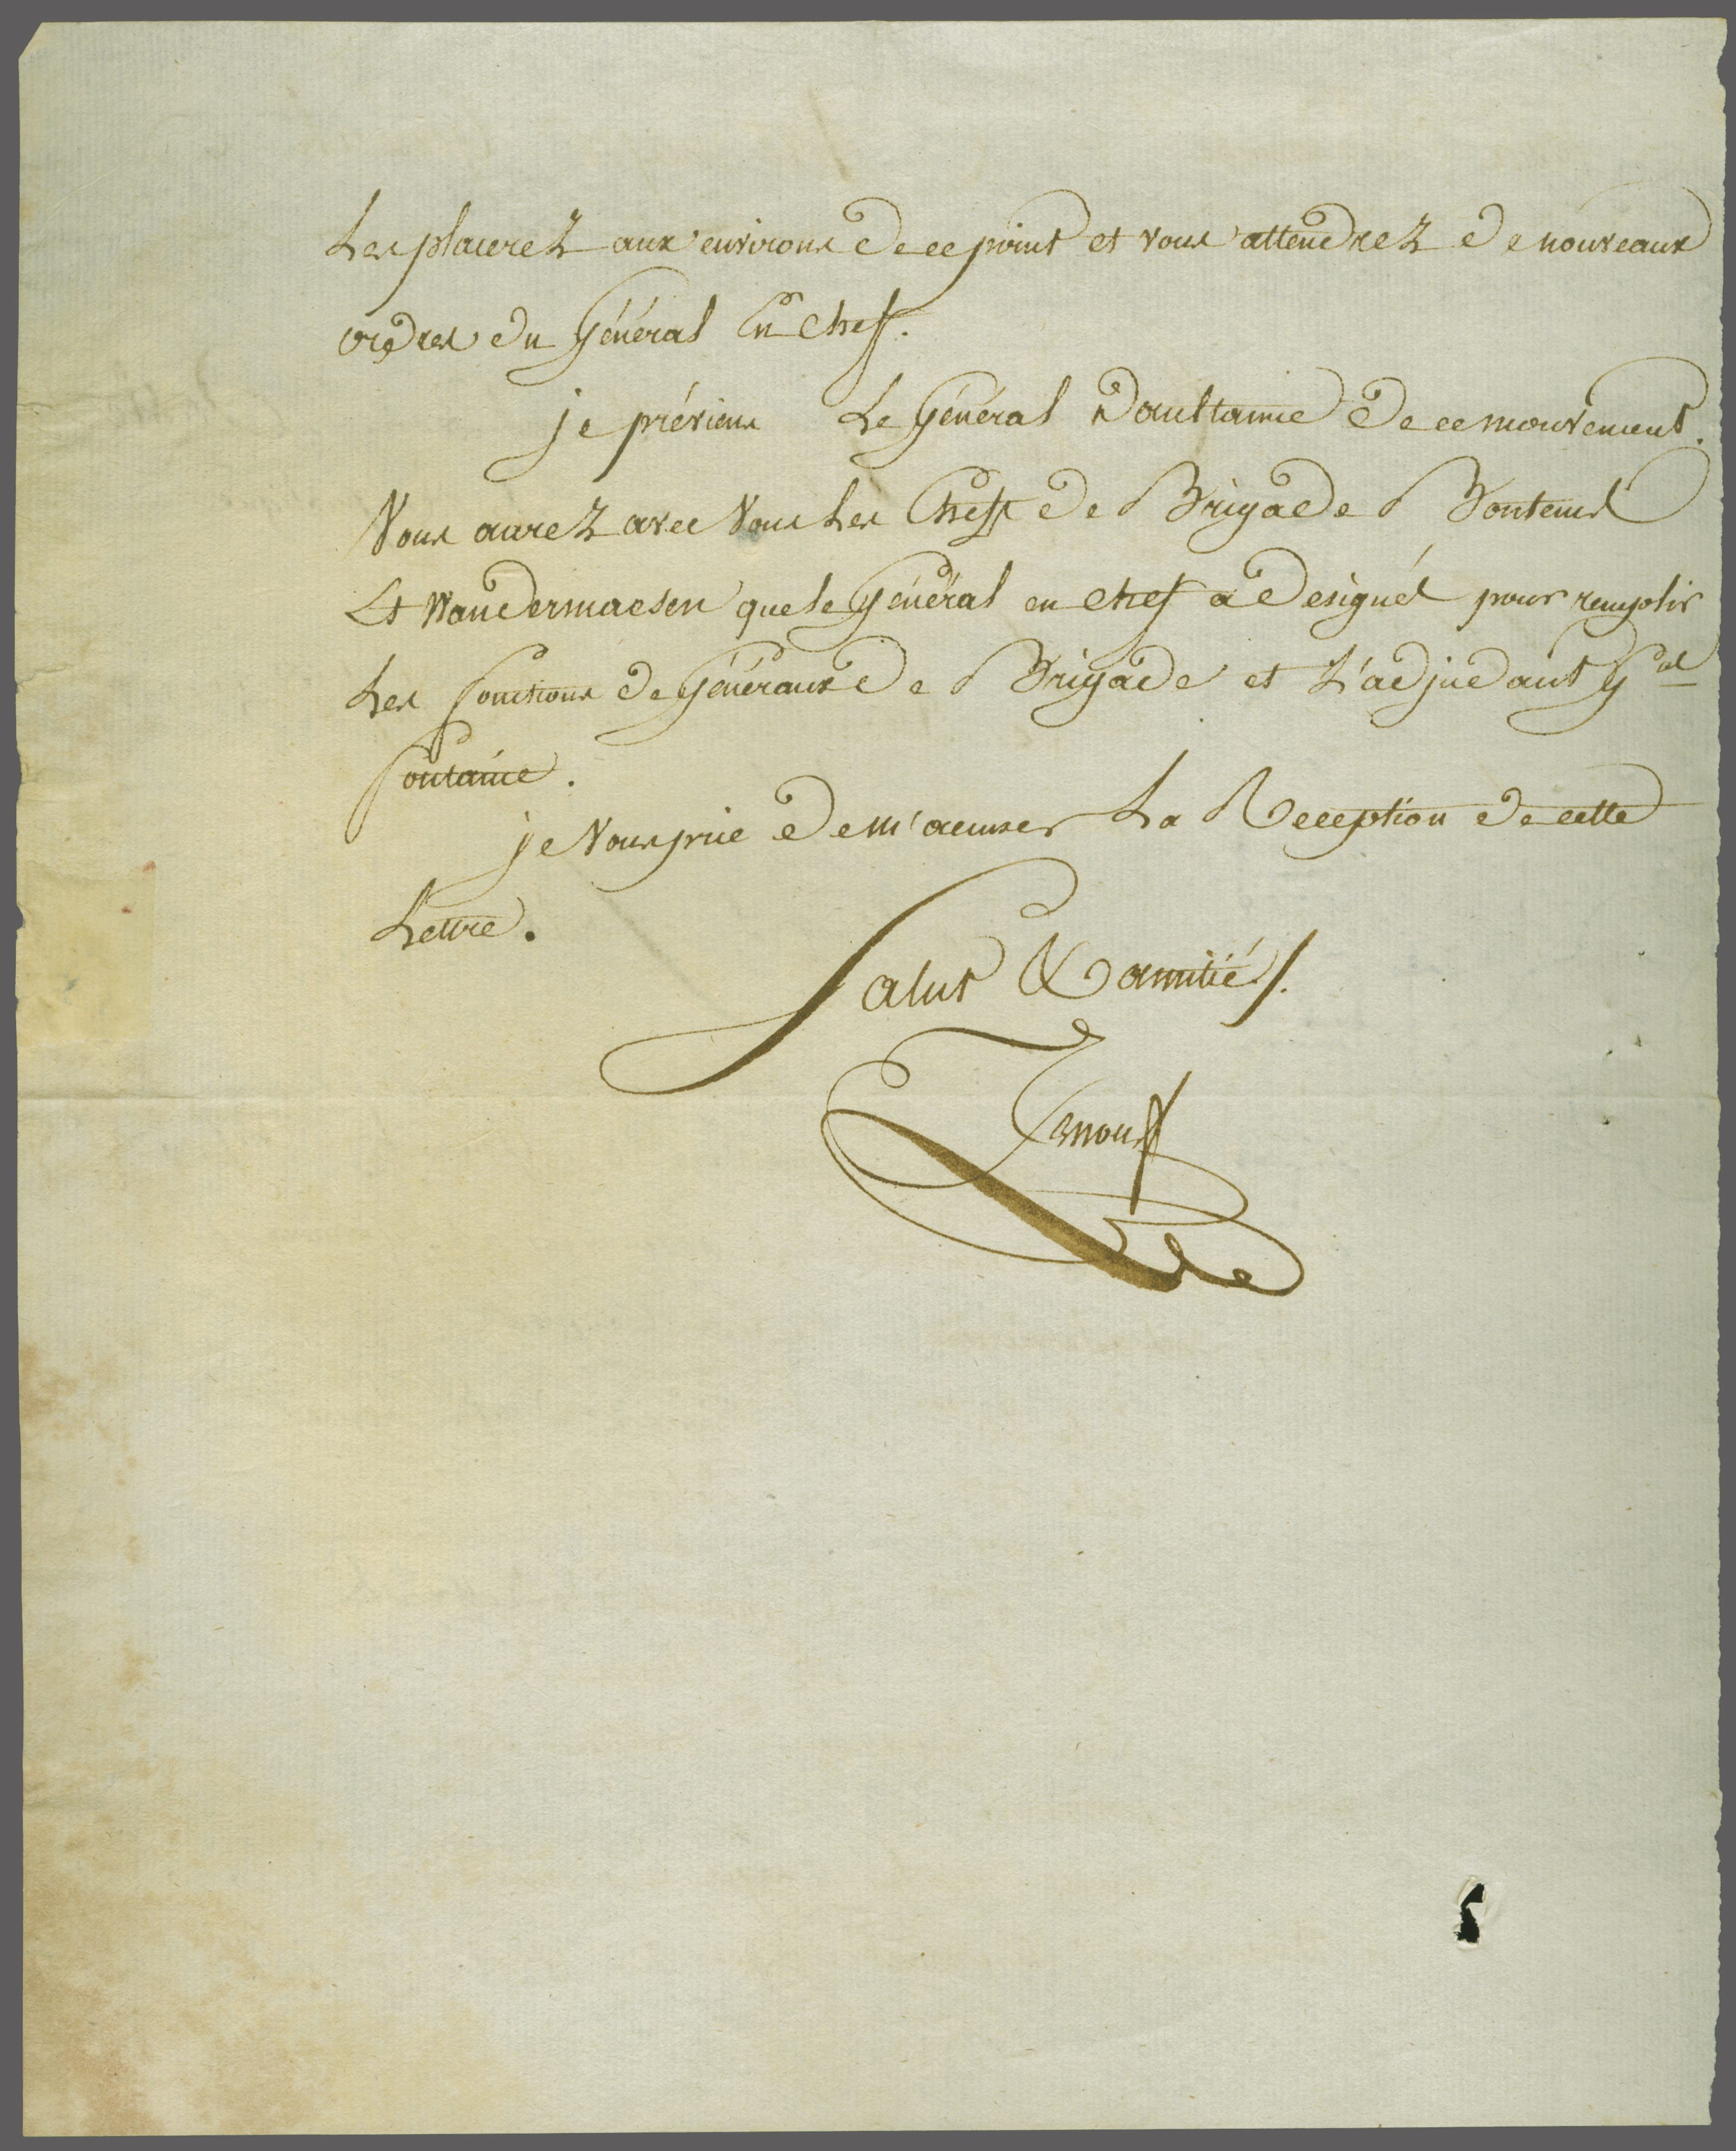 Les placerez aux environs de ce point et vous attendrez de nouveaux
ordres du Général En Chef.
je préviens Le Général Daultanne de ce mouvement.
Vous aurez avec Vous Les Chefs de Brigade Bontems
Et Wandermaesen que le Général en chef a designés pour remplir
Les fonctions de Généraux de Brigade et L'adjudant Gal
fontaine.
je Vous prie de m'accuser La Reception de cette
Lettre.
Salut & amitiés.
Ernouf